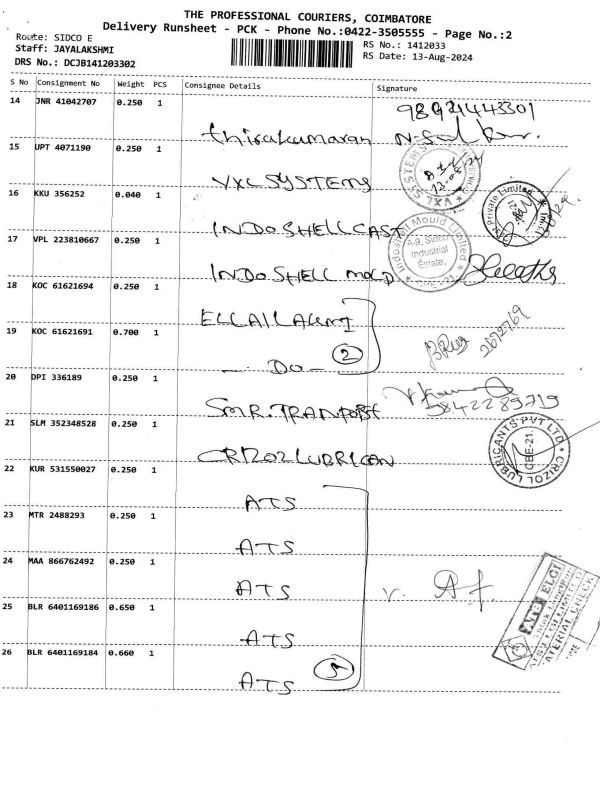 THE PROFESSIONAL COURIERS, COIMBATORE
Delivery Runsheet - PCK - Phone No.:0422-3505555 - Page No.:2
Route: SIDCO E
RS No.: 1412033
Staff: JAYALAKSHMI
RS Date: 13-Aug-2024
DRS No.: DCJB141203302
S No Consignment No Weight PCS Consignee Details Signature
14 JNR 41042707 0.250 1
thirukumaran
15 UPT 4071190 0.250 1
VXL SYSTEMS
16 KKU 356252 0.040 1
INDOSHELL CAST
Private Limited
17 VPL 223810667 0.250 1
Indoshell Mould Limited
A-9, Sidco
Industrial
Estate,
INDO SHELL MOLD
18 KOC 61621694 0.250 1
19 KOC 61621691 0.700 1
2
- Do -
20 DPI 336189 0.250 1
9842289719
SMR. TRANPORT
21 SLM 352348528 0.250 1
CRIZOL LUBRICANTS PVT LTD
CBE-21
CRIZOL LUBRICAN
22 KUR 531550027 0.250 1
ATS
23 MTR 2488293 0.250 1
ATS
24 MAA 866762492 0.250 1
ATS
25 BLR 6401169186 0.650 1
ATS
26 BLR 6401169184 0.660 1
5
ATS